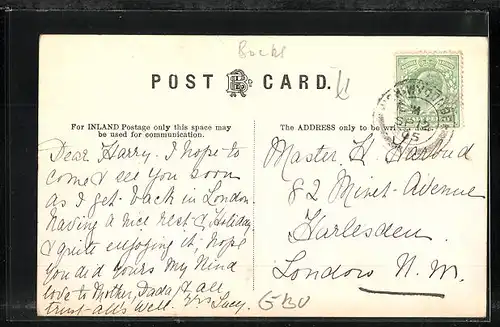 Bucks
POST CARD.
For INLAND Postage only this space may
be used for communication.
The ADDRESS only to be written
Dear Harry. I hope to
come & see you soon
as I get back in London
having a nice rest & Holiday
& quite enjoying it, hope
you did yours My kind
love to Mother, Dada & all
trust alls well. Yrs Lucy.
Master H.
82 Minet-Avenue
Harlesden
London N.W.
GBU